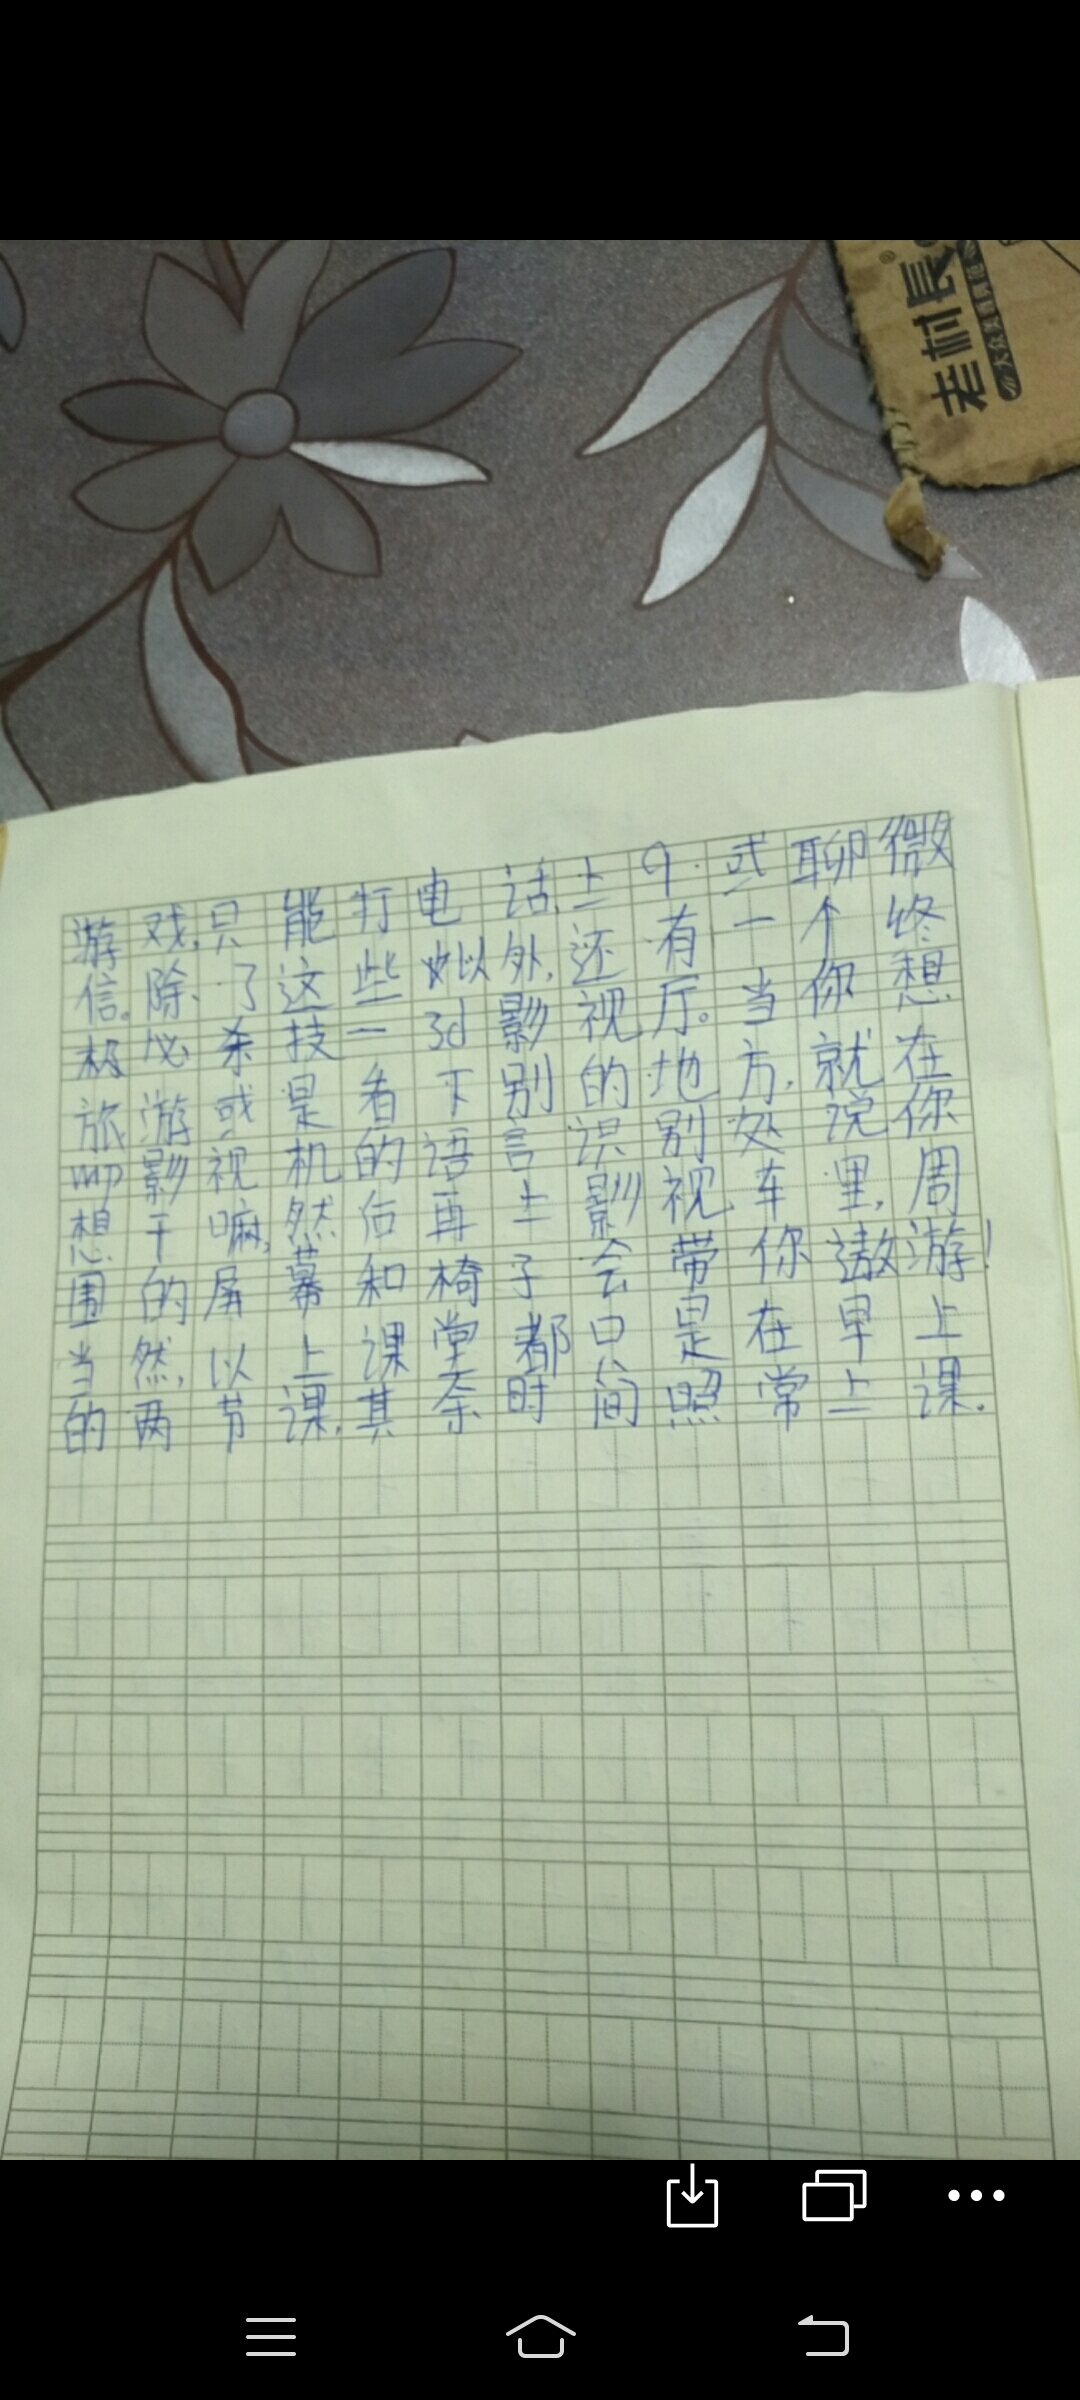 老村長®
大众美酒
游戏,只能打电话,上q.或聊微
信。除了这些以外,还有一个终
极必杀技一3d影视厅。当你想
旅游或是看下别的地方,就在
影视机的语言识别处说你
想干嘛,然后再上影视车里,周
围的屏幕和椅子会带你遨游!
当然,以上课堂都只是在早上
的两节课,其余时间照常上课.